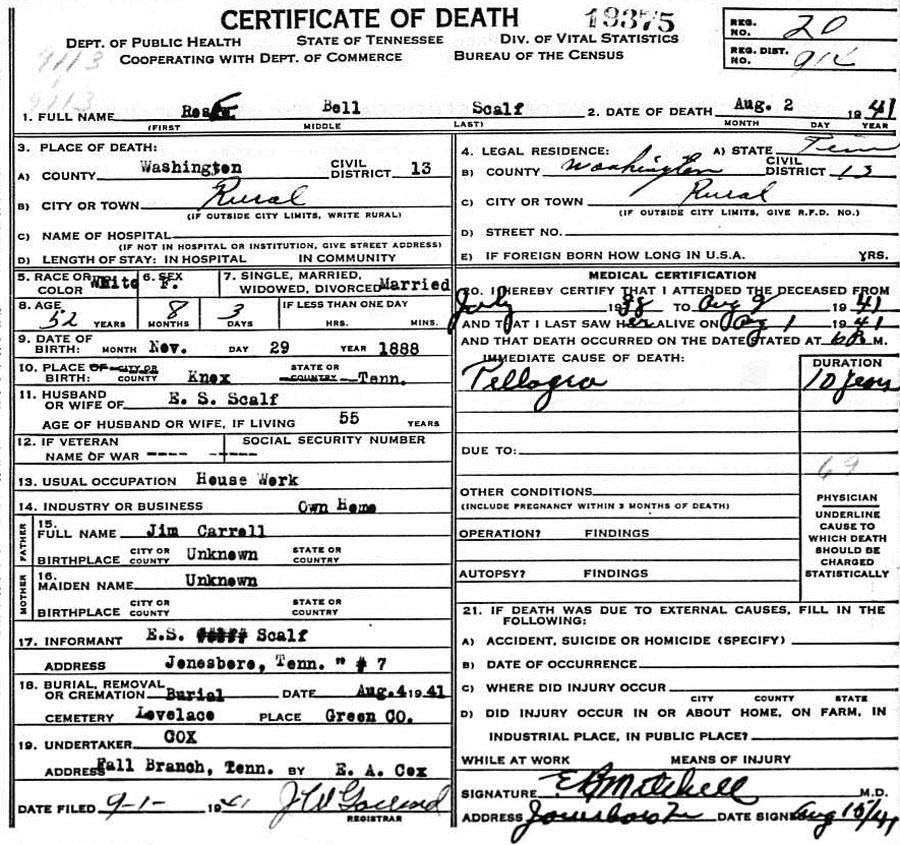 CERTIFICATE OF DEATH 19375
DEPT. OF PUBLIC HEALTH STATE OF TENNESSEE DIV. OF VITAL STATISTICS
COOPERATING WITH DEPT. OF COMMERCE BUREAU OF THE CENSUS
REG. NO. 20
REG. DIST. NO. 914
9113
9113
1. FULL NAME Bell Scalf 2. DATE OF DEATH Aug. 2 1941
(FIRST MIDDLE LAST) MONTH DAY YEAR
3. PLACE OF DEATH:
A) COUNTY Washington CIVIL DISTRICT 13
B) CITY OR TOWN Rural
(IF OUTSIDE CITY LIMITS, WRITE RURAL)
C) NAME OF HOSPITAL
(IF NOT IN HOSPITAL OR INSTITUTION, GIVE STREET ADDRESS)
D) LENGTH OF STAY: IN HOSPITAL IN COMMUNITY
4. LEGAL RESIDENCE: A) STATE Tenn
B) COUNTY Washington CIVIL DISTRICT 13
C) CITY OR TOWN Rural
(IF OUTSIDE CITY LIMITS, GIVE R.F.D. NO.)
D) STREET NO.
E) IF FOREIGN BORN HOW LONG IN U.S.A. YRS.
5. RACE OR COLOR White 6. SEX F. 7. SINGLE, MARRIED, WIDOWED, DIVORCED Married
8. AGE 52 YEARS 8 MONTHS 3 DAYS IF LESS THAN ONE DAY HRS. MINS.
9. DATE OF BIRTH: MONTH Nov. DAY 29 YEAR 1888
10. PLACE OF BIRTH: CITY OR COUNTY Knox STATE OR COUNTRY Tenn.
11. HUSBAND OR WIFE OF E. S. Scalf
AGE OF HUSBAND OR WIFE, IF LIVING 55 YEARS
12. IF VETERAN NAME OF WAR ---- SOCIAL SECURITY NUMBER -----
13. USUAL OCCUPATION House Work
14. INDUSTRY OR BUSINESS Own Home
FATHER
15. FULL NAME Jim Carrell
BIRTHPLACE CITY OR COUNTY Unknown STATE OR COUNTRY
MOTHER
16. MAIDEN NAME Unknown
BIRTHPLACE CITY OR COUNTY STATE OR COUNTRY
17. INFORMANT E.S. ##### Scalf
ADDRESS Jonesboro, Tenn. " # 7
18. BURIAL, REMOVAL OR CREMATION Burial DATE Aug.4 1941
CEMETERY Lovelace PLACE Green CO.
19. UNDERTAKER COX
ADDRESS Fall Branch, Tenn. BY E. A. Cox
DATE FILED 9-1- 1941
REGISTRAR
MEDICAL CERTIFICATION
20. I HEREBY CERTIFY THAT I ATTENDED THE DECEASED FROM
July 1938 TO Aug 1941
AND THAT I LAST SAW Her ALIVE ON Aug 1 1941
AND THAT DEATH OCCURRED ON THE DATE STATED AT M.
IMMEDIATE CAUSE OF DEATH: DURATION
Pellagra 10 years
DUE TO:
69
OTHER CONDITIONS
(INCLUDE PREGNANCY WITHIN 3 MONTHS OF DEATH)
OPERATION? FINDINGS
AUTOPSY? FINDINGS
PHYSICIAN
UNDERLINE
CAUSE TO
WHICH DEATH
SHOULD BE
CHARGED
STATISTICALLY
21. IF DEATH WAS DUE TO EXTERNAL CAUSES, FILL IN THE FOLLOWING:
A) ACCIDENT, SUICIDE OR HOMICIDE (SPECIFY)
B) DATE OF OCCURRENCE
C) WHERE DID INJURY OCCUR
CITY COUNTY STATE
D) DID INJURY OCCUR IN OR ABOUT HOME, ON FARM, IN
INDUSTRIAL PLACE, IN PUBLIC PLACE?
WHILE AT WORK MEANS OF INJURY
SIGNATURE Mitchell M.D.
ADDRESS Jonesboro Tn DATE SIGNED Aug 15/41